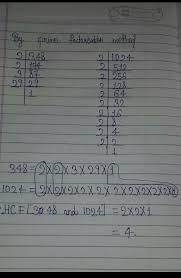 By prime factorisation method
2 348    2 1024
2 174    2 512
3 87    2 256
29 29    2 128
1    2 64
2 32
2 16
2 8
2 4
2 2
1
348 = 2×2×3×29×1
1024 = 2×2×2×2×2×2×2×2×2×2
HCF [3048 and 1024] = 2×2×1
= 4.